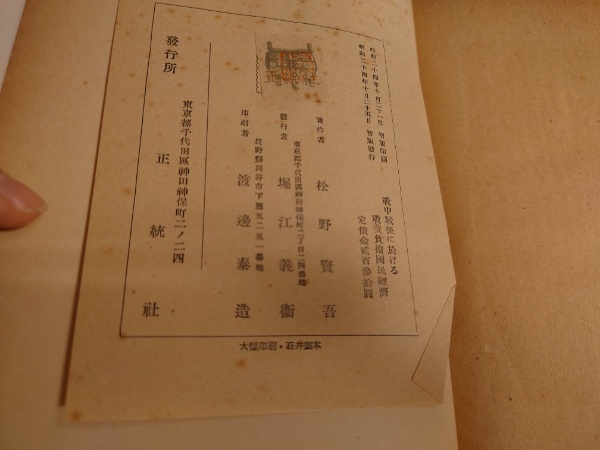 昭和二十四年十月二十日 初版印刷
昭和二十四年十月二十五日 初版發行
戰中戰後に於ける
戰費負擔國民經濟
定價金貳百參拾圓
著作者 松野賢吾
東京都千代田區神田神保町二丁目二四番地
發行者 堀江義衞
長野縣岡谷市下濱五二五一番地
印刷者 渡邊泰造
東京都千代田區神田神保町二ノ二四
發行所 正統社
大恒印刷・石井製本